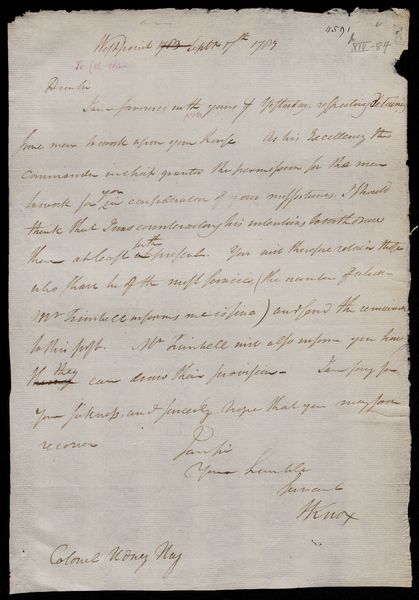 4591
XIV-84
West point 1782 Septr 17th 1782
Dear Sir
I am favored with yours of Yesterday, respecting detaining
some men to work upon your house. As his Excellency the
commander in chief granted the permission for the men
to work for you in consideration of your misfortunes, I should
think that I was counteracting his intentions to withdraw
them at least at present. You will therefore retain those
who shall be of the most service, (the number of which
Mr Trimbell informs me is five) and send the remainder
to this post. Mr Trimbell will also inform you how
they can draw their provision. I am sorry for
your sickness, and sincerely hope that you may soon
recover
I am Sir
Your humble
Servant
HKnox
Colonel Udney Hay